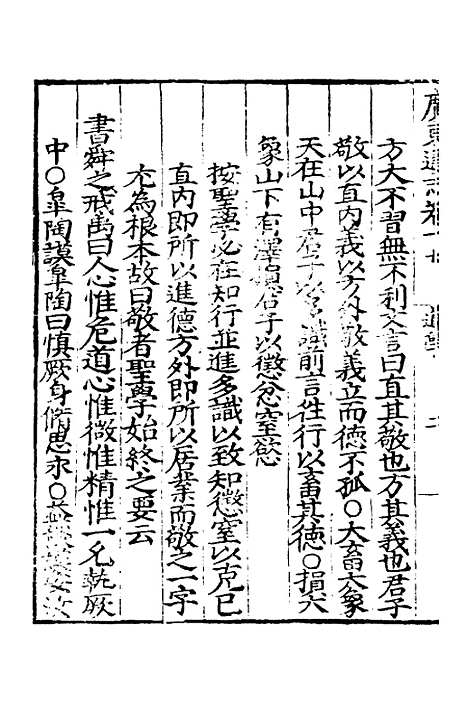 方大不習無不利文言曰直其敬也方其義也君子
敬以直內義以方外敬義立而德不孤〇大畜大象
天在山中君子以多識前言往行以畜其德〇損大
象山下有澤損君子以懲忿窒慾
按聖學必在知行並進多識以致知懲窒以克已
直內即所以進德方外即所以居業而敬之一字
尤為根本故曰敬者聖學始終之要云
書舜之戒禹曰人心惟危道心惟微惟精惟一允執厥
中〇皐陶謨皐陶曰慎厥身脩思永〇益稷